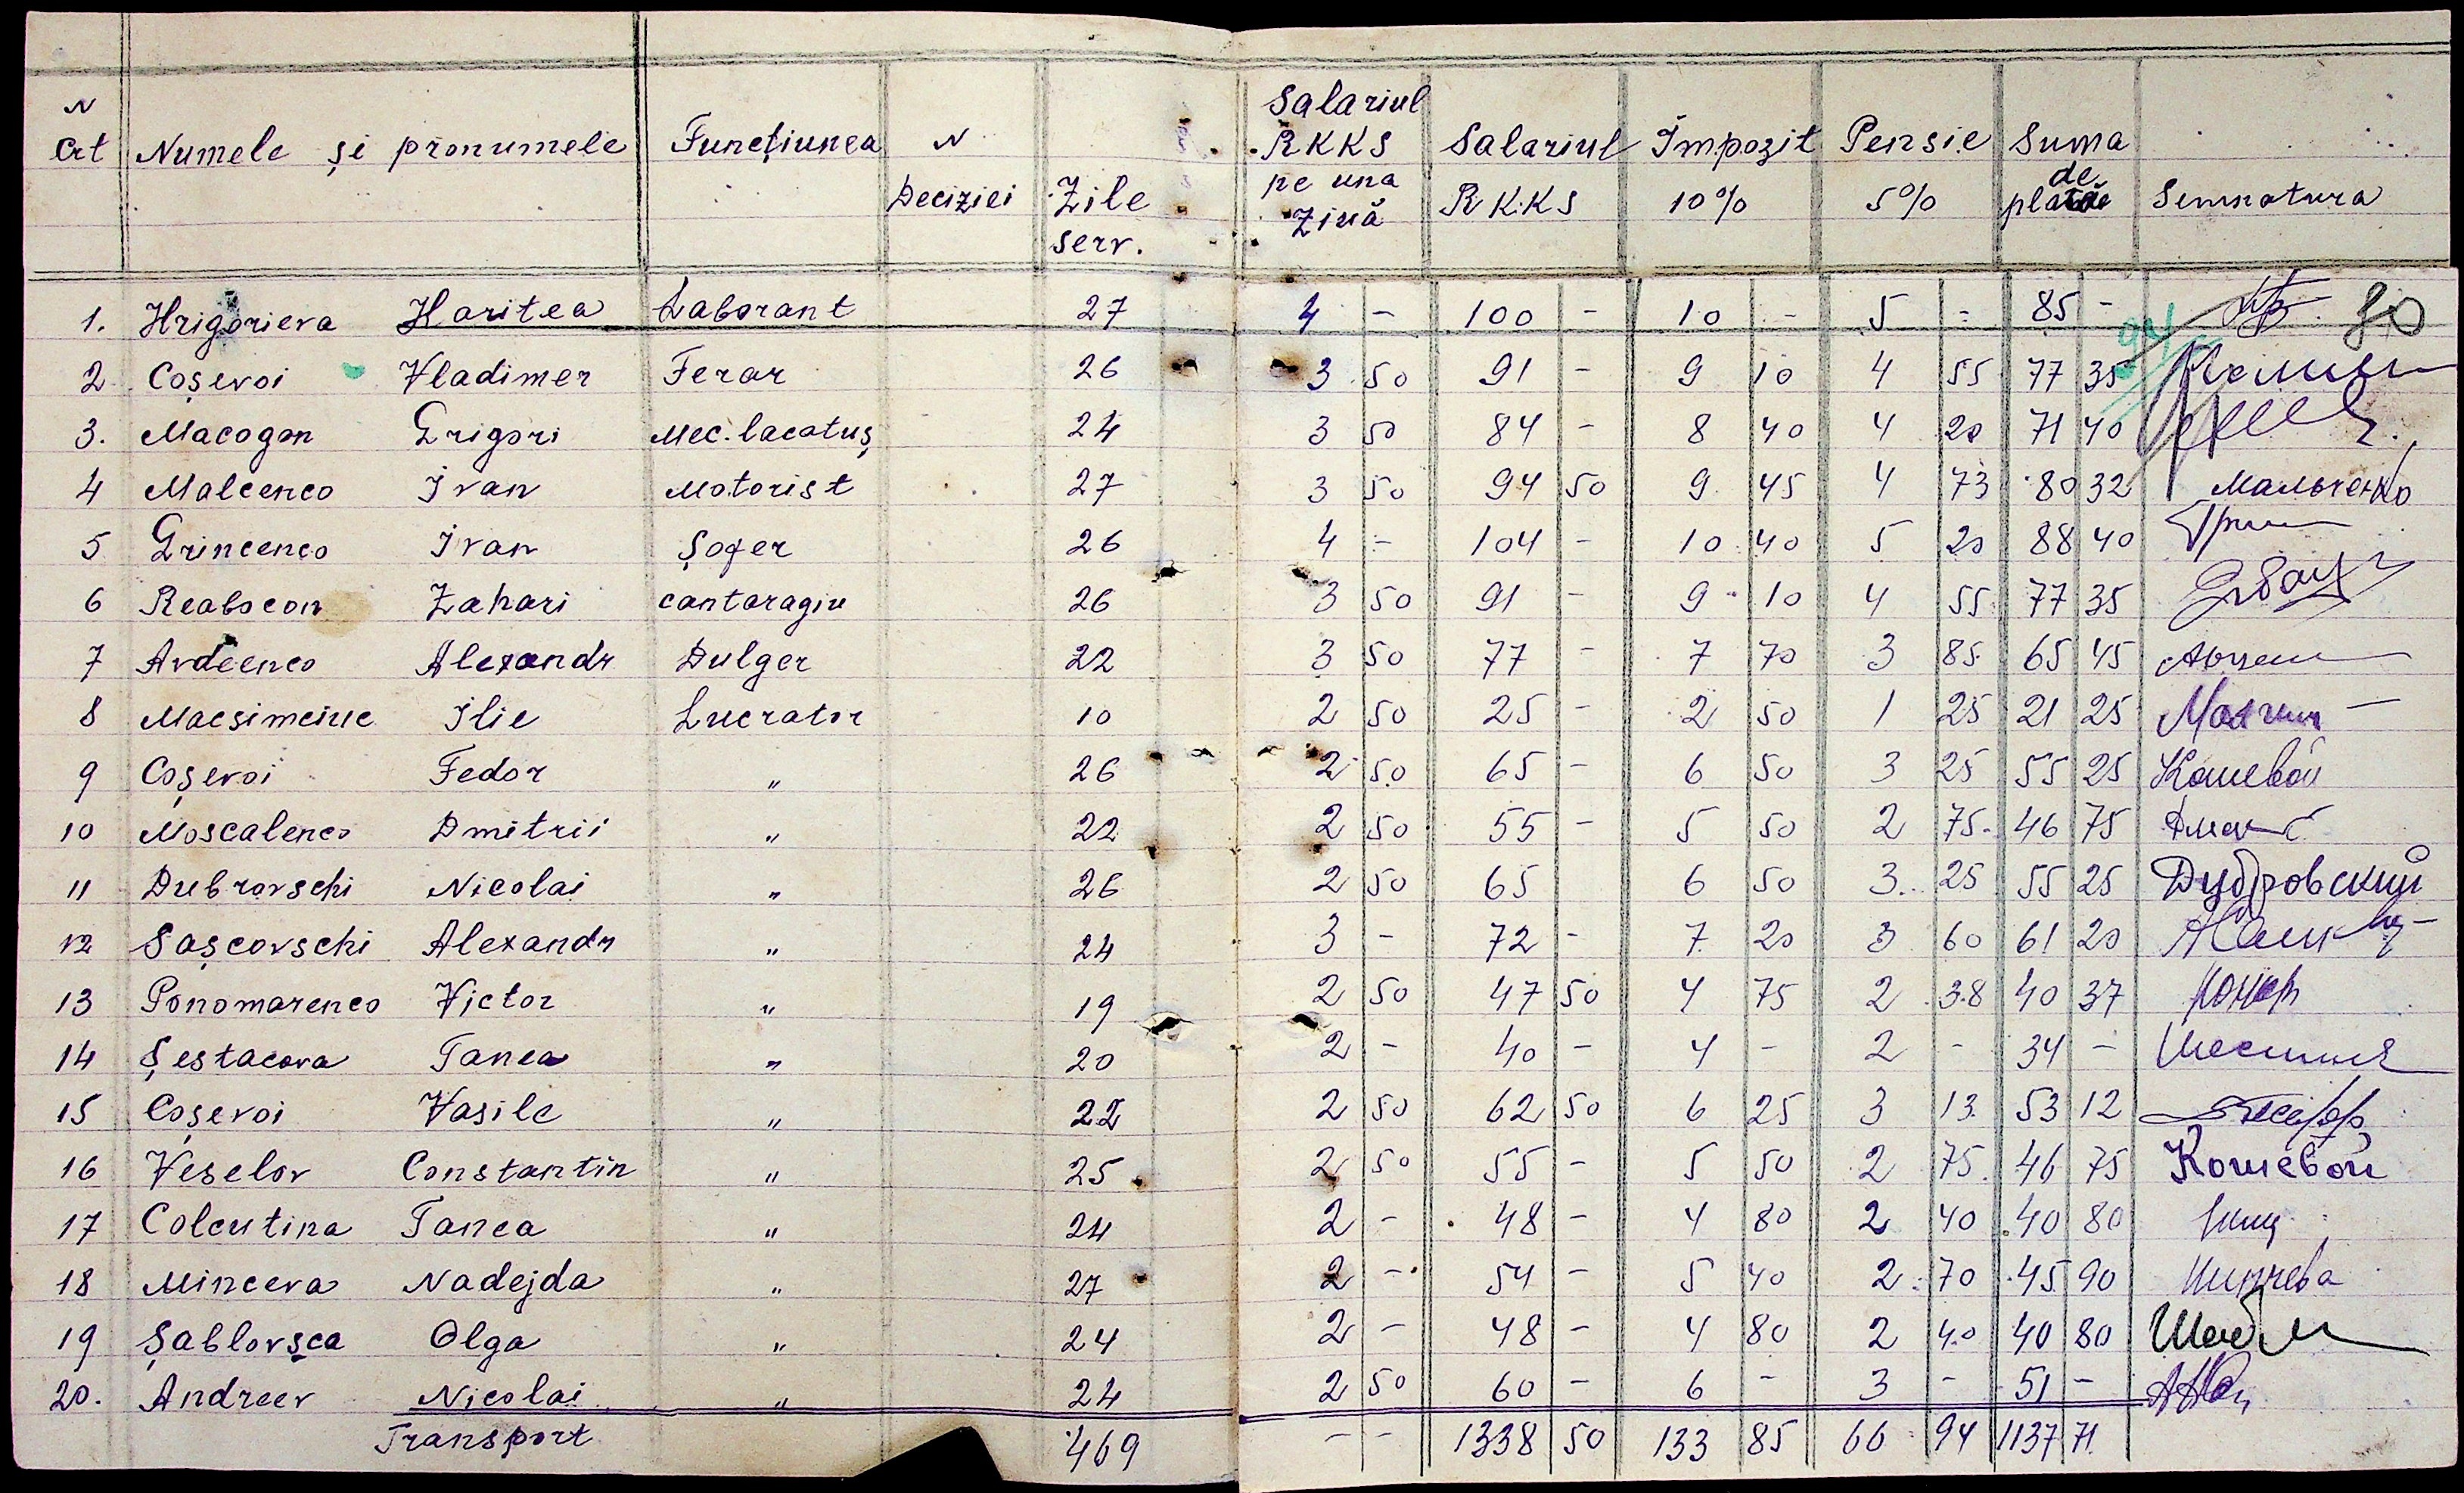 N Crt Numele și pronumele Funcțiunea N Deciziei Zile serv. Salariul RKKS pe una ziuă Salariul RKKS Impozit 10% Pensie 5% Suma de plată Semnatura
1. Hrigorieva Haritea Laborant 27 4 - 100 - 10 - 5 - 85 - 30
94
2 Coșevoi Vladimer Ferar 26 3 50 91 - 9 10 4 55 77 35
3. Macogon Grigori Mec. lacatuș 24 3 50 84 - 8 40 4 20 71 40
4 Malcenco Ivan Motorist 27 3 50 94 50 9 45 4 73 80 32 Мальченко
5 Grincenco Ivan Șofer 26 4 - 104 - 10 40 5 20 88 40
6 Reabocon Zahari cantaragiu 26 3 50 91 - 9 10 4 55 77 35
7 Avdeenco Alexandr Dulger 22 3 50 77 - 7 70 3 85 65 45
8 Macsimciuc Ilie Lucrator 10 2 50 25 - 2 50 1 25 21 25
9 Coșevoi Fedor " 26 2 50 65 - 6 50 3 25 55 25 Кошевой
10 Moscalenco Dmitrii " 22 2 50 55 - 5 50 2 75 46 75
11 Dubrovschi Nicolai " 26 2 50 65 6 50 3 25 55 25 Дубровский
12 Sașcovschi Alexandr " 24 3 - 72 - 7 20 3 60 61 20
13 Ponomarenco Victor " 19 2 50 47 50 4 75 2 38 40 37
14 Șestacova Tanea " 20 2 - 40 - 4 - 2 - 34 -
15 Coșevoi Vasile " 22 2 50 62 50 6 25 3 13 53 12
16 Veselov Constantin " 25 2 50 55 - 5 50 2 75 46 75 Кошевой
17 Colcutina Tanea " 24 2 - 48 - 4 80 2 40 40 80
18 Minceva Nadejda " 27 2 - 54 - 5 40 2 70 45 90 Минчева
19 Șablovșca Olga " 24 2 - 48 - 4 80 2 40 40 80
20. Andreev Nicolai " 24 2 50 60 - 6 - 3 - 51 -
Transport 469 - - 1338 50 133 85 66 94 1137 71